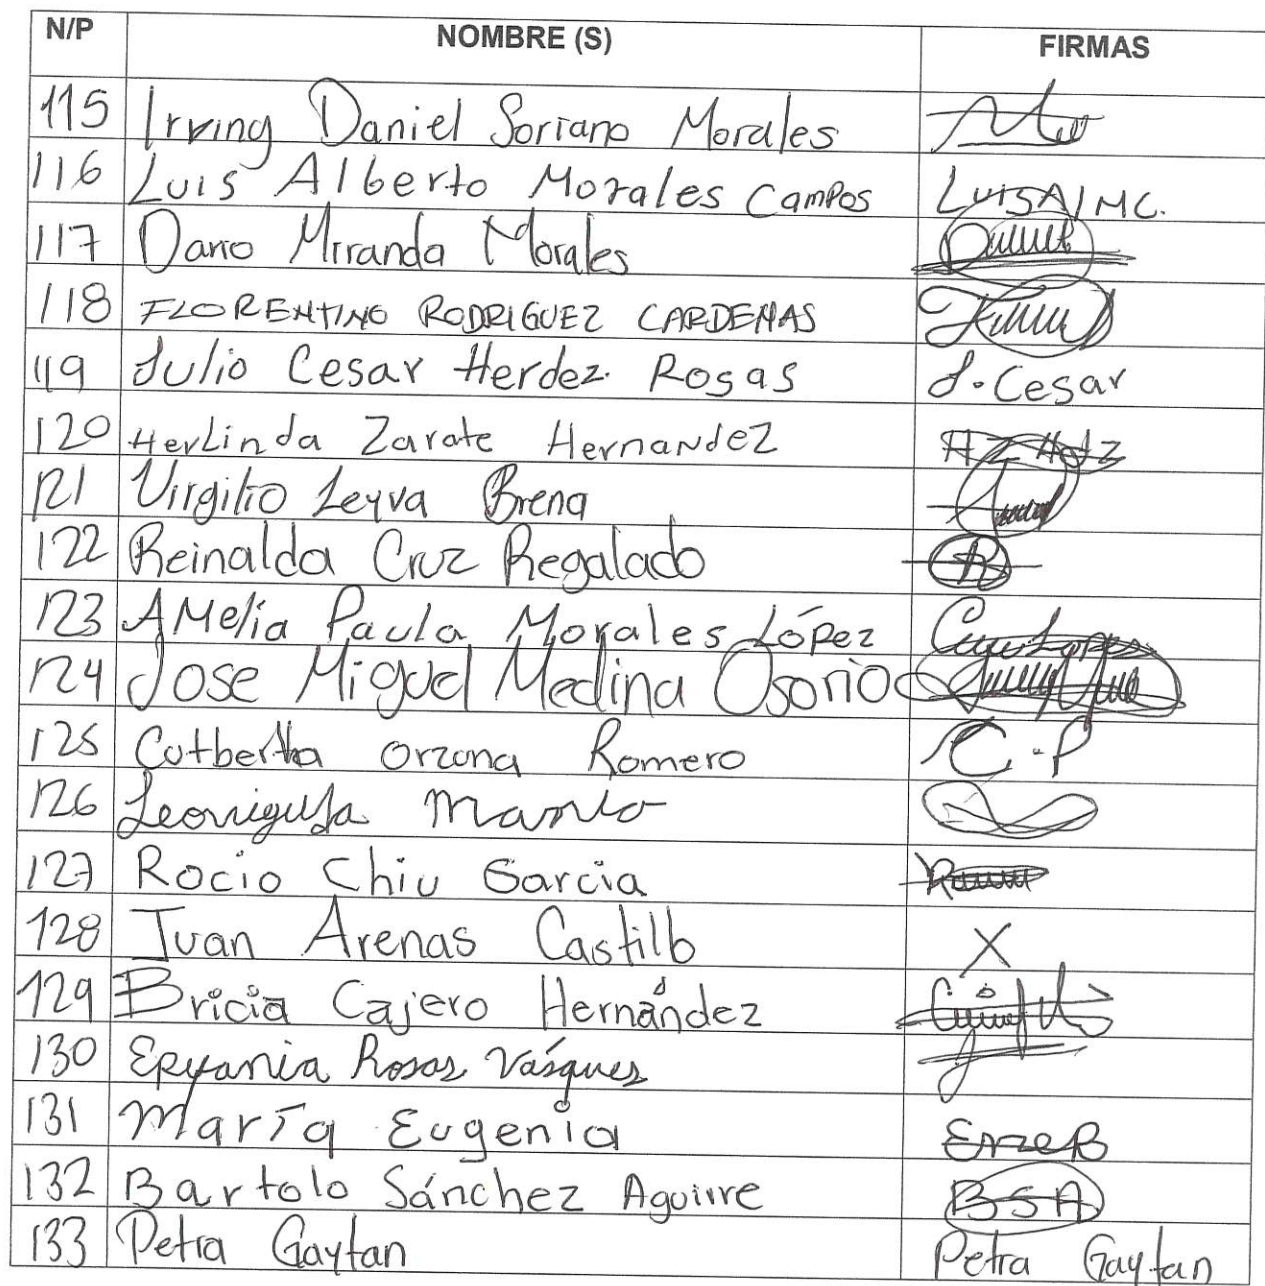 N/P NOMBRE (S) FIRMAS
115 Irving Daniel Soriano Morales
116 Luis Alberto Morales Campos LUISAlMC.
117 Dario Miranda Morales
118 FLORENTINO RODRIGUEZ CARDENAS
119 Julio Cesar Herdez. Rosas J. Cesar
120 Herlinda Zarate Hernandez HZ Hdz
121 Virgilio Leyva Brena
122 Reinalda Cruz Regalado R
123 AMelia Paula Morales López
124 Jose Miguel Medina Osorio
125 Cutberta Orzona Romero C.P
126
127 Rocio Chiu Garcia
128 Juan Arenas Castillo X
129 Bricia Cajero Hernández
130 Rosas Vásques
131 María Eugenia
132 Bartolo Sánchez Aguirre BSA
133 Petra Gaytan Petra Gaytan